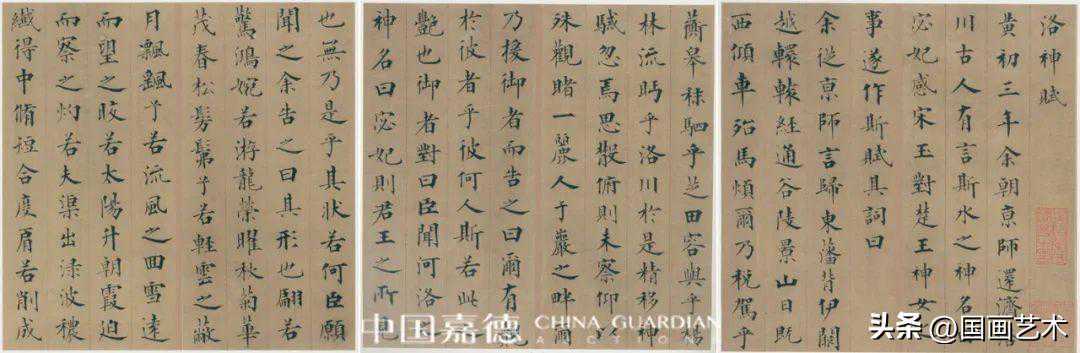 洛神賦
黃初三年余朝亰師還濟
川古人有言斯水之神名
宓妃感宋玉對楚王神女
事遂作斯賦其詞曰
余從亰師言歸東藩背伊闕
越轘轅經通谷陵景山日既
西傾車殆馬煩爾乃稅駕乎
蘅皋秣駟乎芝田容與乎楊
林流眄乎洛川於是精移神
駭忽焉思散俯則未察仰
殊觀睹一麗人于巖之畔爾
乃援御者而告之曰爾有
於彼者乎彼何人斯若此
艷也御者對曰臣聞河洛
神名曰宓妃則君王之所見
也無乃是乎其狀若何臣願
聞之余告之曰其形也翩若
驚鴻婉若游龍榮曜秋菊華
茂春松髣髴兮若輕雲之蔽
月飄颻兮若流風之迴雪遠
而望之皎若太陽升朝霞迫
而察之灼若夫渠出淥波穠
纖得中脩短合度肩若削成
中国嘉德 CHINA GUARDIAN
AUCTION
头条 @国画艺术